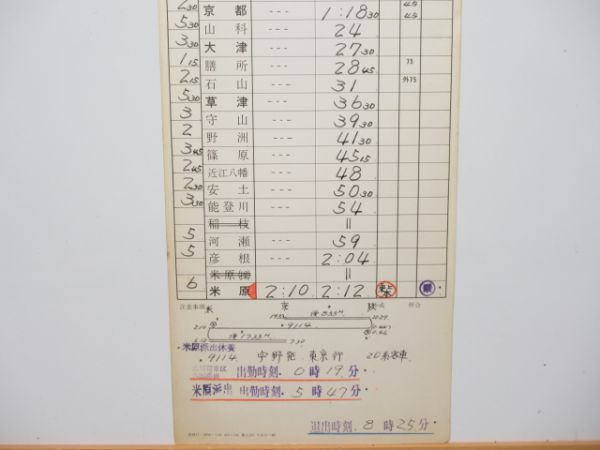 2 30 京都 1:18 30 45
5 30 山科 --- 24
3 30 大津 --- 27 30
1 15 膳所 --- 28 45 75
2 15 石山 --- 31 外75
5 30 草津 --- 36 30
3 守山 --- 39 30
2 野洲 --- 41 30
3 45 篠原 --- 45 15
2 45 近江八幡 --- 48
2 30 安土 --- 50 30
3 30 能登川 --- 54
稲枝 〃
5 河瀬 --- 59
5 彦根 --- 2:04
米原 〃
6 米原 2:10 2:12
注意事項 米 京
9114
730
米原派出休養
9114 宇野発 東京行 20系客車
出勤時刻. 0時19分.
米原派出 出勤時刻. 5時47分.
退出時刻. 8時25分.